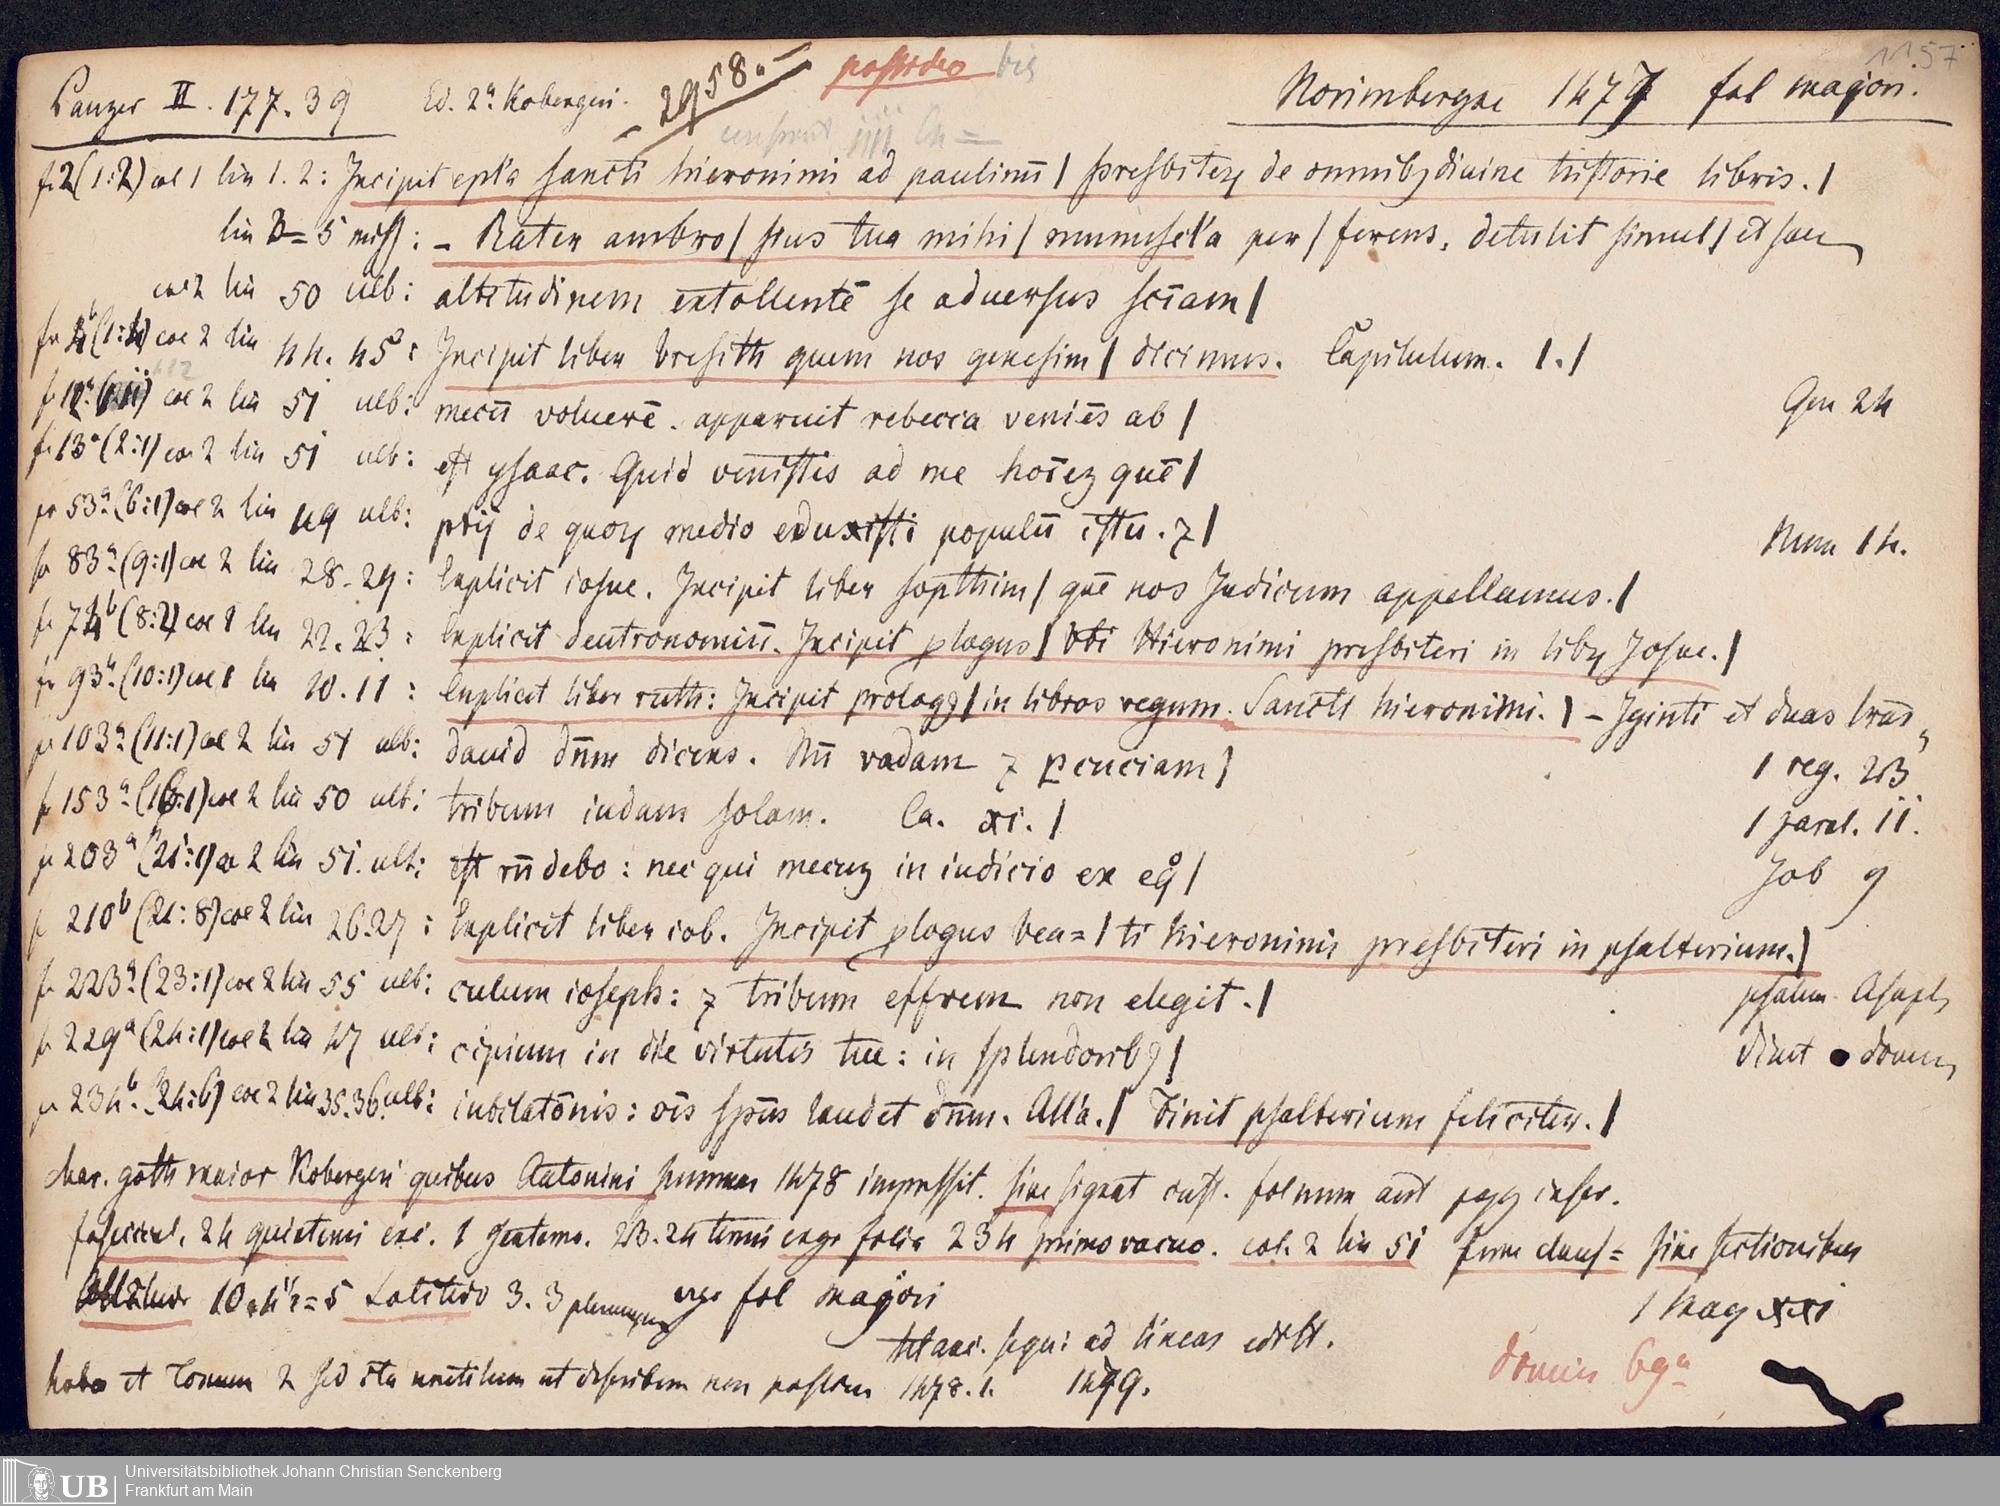 11.57
Panzer II. 177. 39 Ed. 2ª Kobergeri. 2958. possideo bis Norimbergae 1477 fol majori.
f. 2 (1:2) col 1 lin 1. 2: Incipit epl'a sancti hieronimi ad paulinū / presbiteꝝ de omnibꝫ diuine historie libris. /
lin 3=5 miss: – Rater ambro / sius tua mihi / munuscl'a per / ferens, detulit simul / et sua
col 2 lin 50 ulb: altitudinem extollentē se aduersus sciam /
fo 4b (1:4) col 2 lin 44. 45: Incipit liber bresith quem nos genesim / dicimus. Capitulum. 1. /
col 2 lin 51 ulb: mecū voluerē. apparuit rebecca veniēs ab / Gen 24
f. 13ª (2:1) col 2 lin 51 ulb: est ysaac. Quid venistis ad me hoīeꝫ quē /
fo 53ª (6:1) col 2 lin 49 ulb: ptij de quoꝝ medio eduxisti populū istu. ⁊ / Num 14.
fo 83ª (9:1) col 2 lin 28. 29: Explicit iosue. Incipit liber sopthim / quē nos Judicum appellamus. /
fo 74b (8:2) col 1 lin 22. 23: Explicit deutronomiū. Incipit ꝓlogus / bti Hieronimi presbiteri in libꝝ Josue. /
fo 93b (10:1) col 1 lin 10. 11: Explicit liber ruth: Incipit prologꝯ / in libros regum. Sancti hieronimi. / – Iginti et duas lrās
fo 103ª (11:1) col 2 lin 51 ulb: dauid dn̄m dicens. Nū vadam ⁊ ꝑcuciam / 1 reg. 23
fo 153ª (16:1) col 2 lin 50 ulb: tribum iudam solam. Ca. xi. / 1 paral. 11.
fo 203ª (21:1) col 2 lin 51. ulb: est rn̄debo: nec qui mecuꝫ in iudicio ex eq̊ / Job 9
f 210b (21:8) col 2 lin 26.27: Explicit liber iob. Incipit ꝓlogus bea= / ti hieronimi presbiteri in psalterium. /
fo 223ª (23:1) col 2 lin 55 ulb: culum ioseph: ⁊ tribum effrem non elegit. / psalm Asaph
fo 229ª (24:1) col 2 lin 47 ulb: cipium in die virtutis tue: in splendoribꝯ / dixit domin
fo 234b (24:6) col 2 lin 35. 36. ulb: iubilatōnis: oīs spūs laudet dn̄m. All'a. / Finit psalterium feliciter. /
char. goth maior Kobergeri quibus Antonini summam 1478 impressit. sine signat cust. fol num aut pagg inscr.
fascicul. 24 quinterni exc. 1 sexterno. 23. 24 ternis ergo folia 234 primo vacuo. col. 2 lin 51 sine sectionibus
Altitudo 10. Latitudo 3. 3 ergo fol majori 1 Mag xxi
sequ: ad lineas edit.
habeo et Tomum 2 sed ita mutilum ut describere non possum 1478. 1. 1479.
Universitätsbibliothek Johann Christian Senckenberg
UB Frankfurt am Main